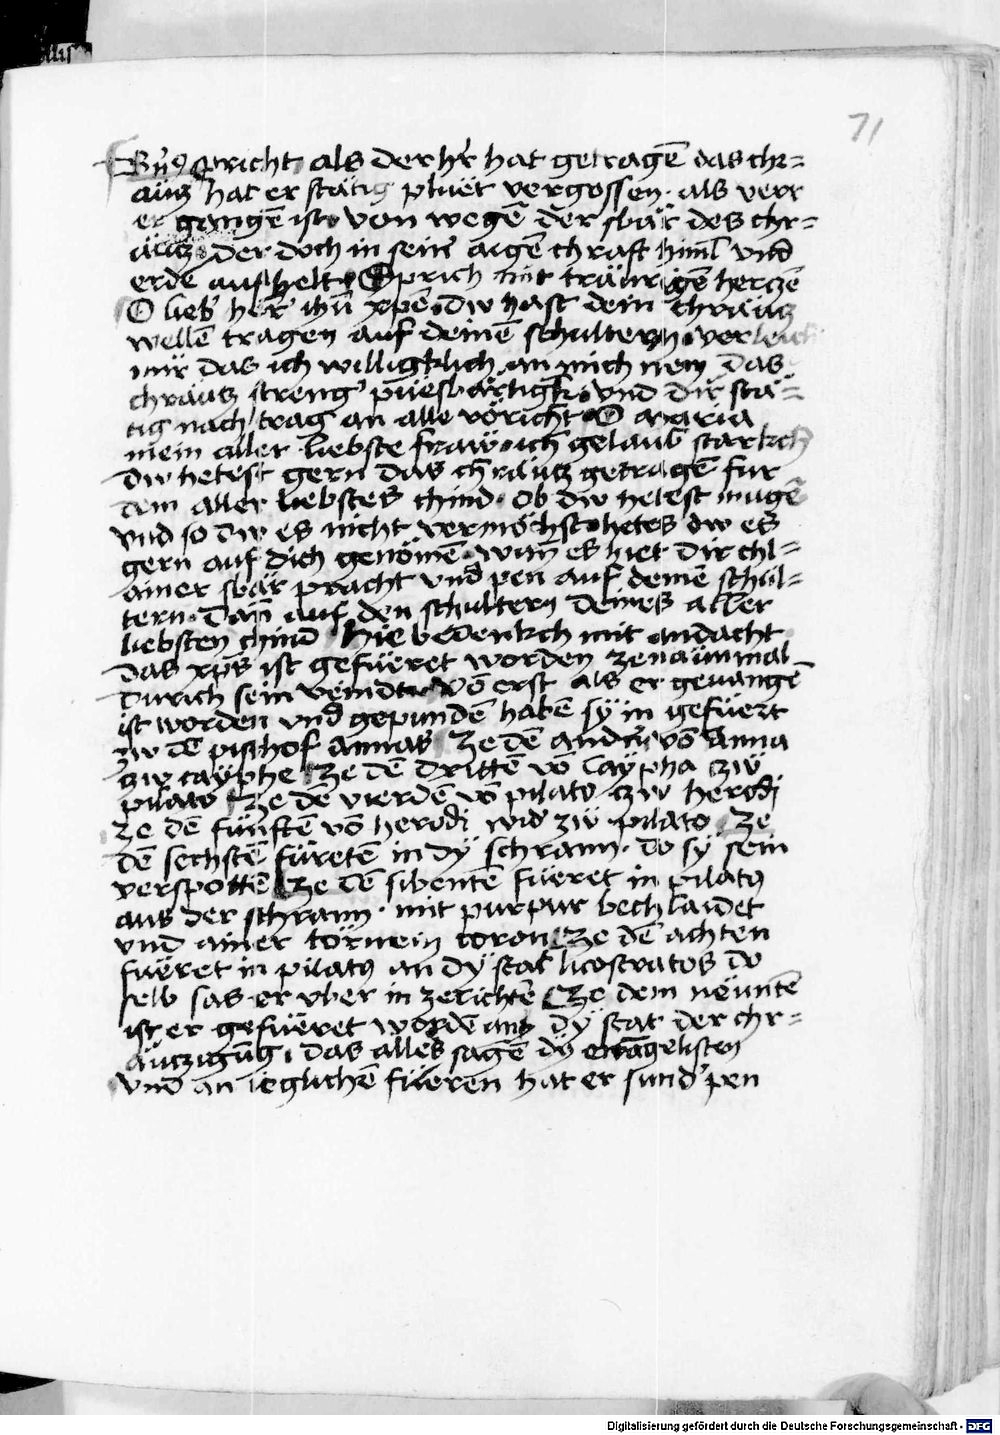 71
spricht als der hr̄ hat getragē das chr=
äutz hat er stätig pluet vergossen · als verr
er gangē ist von wegē der sbär des chr=
äutz · der doch in seiner aigē chraft himl vnd
erde aufhelt Sprich mit träurigē herczē
O lieb' her' ihū xpē dw hast dein chräutz
wellē tragen auf deinē schultern · verleich
mir das ich willigklich an mich nem das
chräutz strenger püesbärtigk vnd dir stä=
tig nach trag an alle vöricht O maria
mein aller liebste fraw · ich gelaub starkch
dw hetest gern das chräutz getragē fur
dem aller liebstes chind · ob dw hetest mugē
vnd so dw es nicht vermöchst hetes dw es
gern auf dich genömē · wan̄ es hiet dir chl=
ainer sbär pracht vnd pen auf deinē schul=
tern · dan̄ auf den schultern deines aller
liebsten chind Hie bedenkch mit andacht
das xps̄ ist gefüeret worden ze naünmal
durich sein veindt Vō erst als er geuangē
ist worden vnd gepundē habē sy in gefüert
zw dē pischof annas Ze dē andn̄ vō Anna
zw cayphe Ze dē drittē vō Caypha zw
pilato Ze dē vierdē vō pilato zw herodi
Ze dē fünftē vō herodi wid' zw pilato Ze
dē sechstē füretē in dy schrann · do sy sein
verspottē Ze dē sibentē füeret in pilatꝰ
aus der schrann · mit purpur bechlaidet
vnd ainer törnein coron Ze dē achten
füeret in pilatꝰ an dy stat licostratos do
selb sas er vber in ze richtē Ze dem neuntē
ist er gefüeret wordē an dy stat der chr=
äutzigūg · das alles sagē dy ewāgelisten
vnd an ieglichē füeren hat er sund' pen
Digitalisierung gefördert durch die Deutsche Forschungsgemeinschaft - DFG